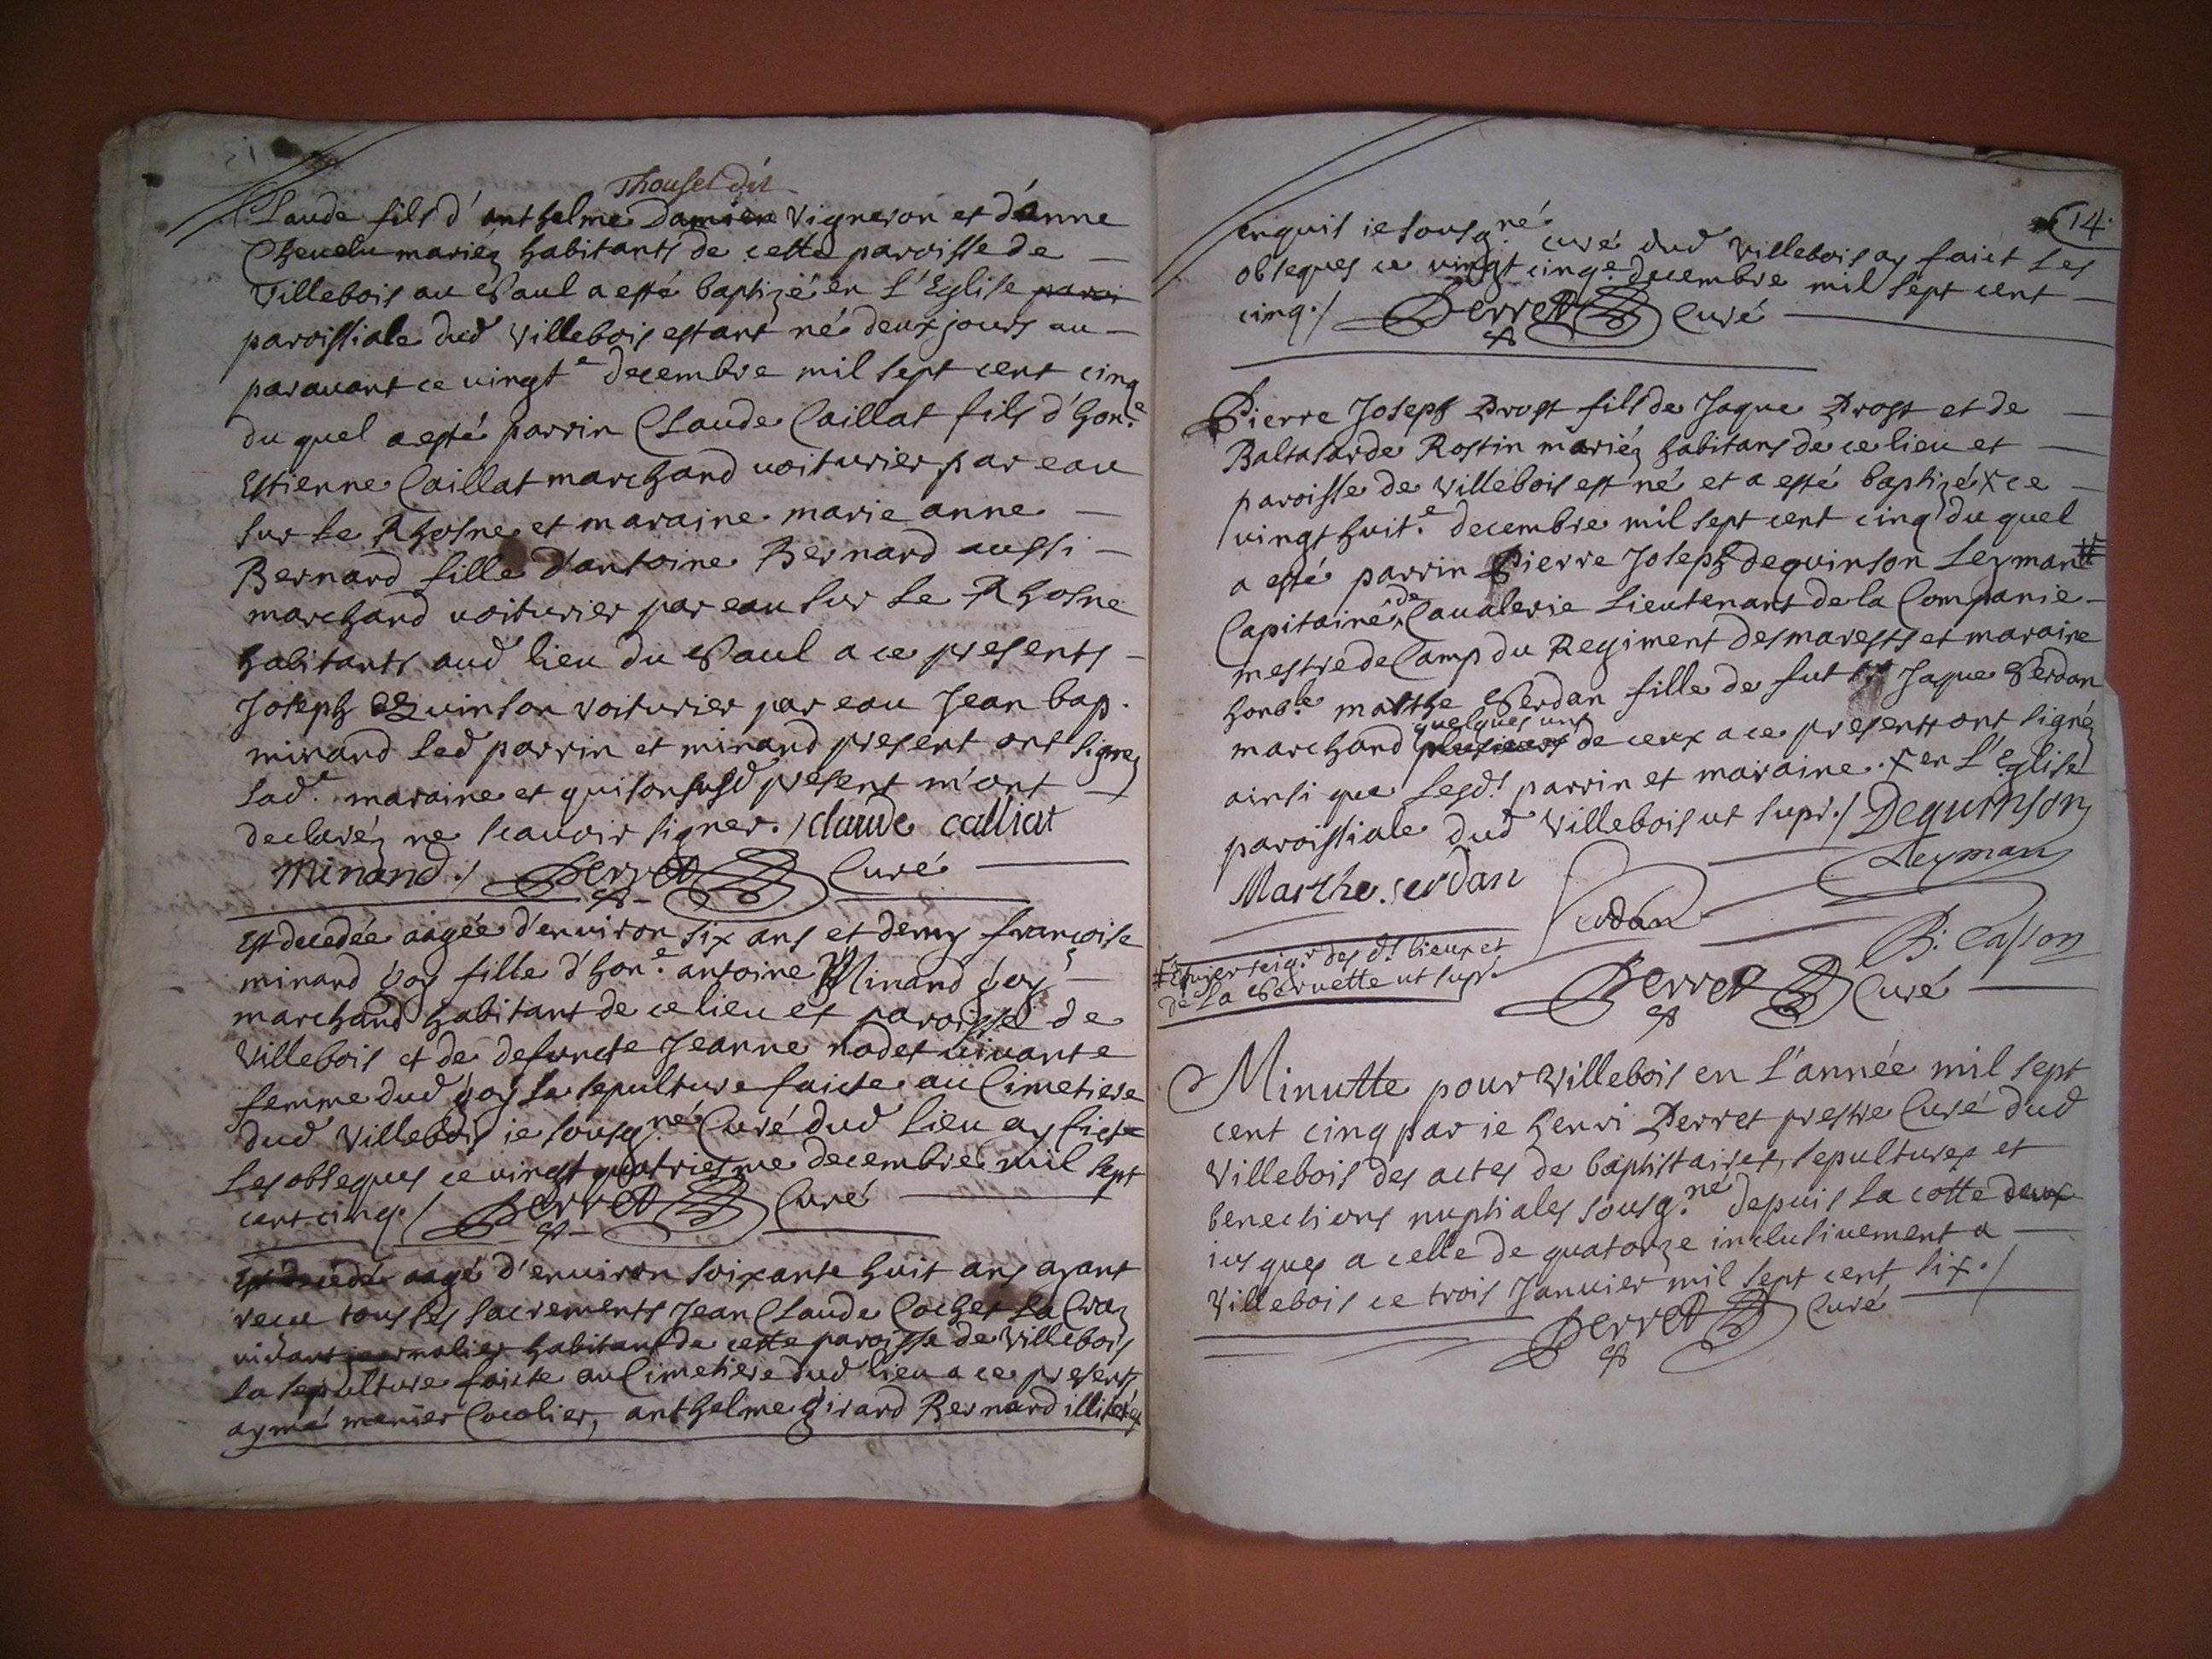 Thouset dit
Claude fils d'anthelme Damien Vigneron et d'anne
Cheuelu mariéz habitants de cette paroisse de
Villebois au Saul a esté baptizé en L'Eglise paroi
paroissiale dud Villebois estant né deux jours au
parauant ce vingt.e decembre mil sept cent cinq
du quel a esté parrin Claude Caillat fils d'hon.e
Estienne Caillat marchand voiturier par eau
sur le Rhosne et maraine marie anne
Bernard fille d'antoine Bernard aussi
marchand voiturier par eau sur le Rhosne
habitants aud lieu du Saul a ce presents
Joseph Quinson voiturier par eau Jean bap.
minand led parrin et minand present ont signez
lad.e maraine et quinson susd present m'ont
declaréz ne scauoir signer ./ claude calliat
Minand ./ Perret Curé
Est decedée aagée d'enuiron six ans et demy françoise
minand goy fille d'hon.e antoine Minand goy
marchand habitant de ce lieu et paroisse de
Villebois et de defuncte Jeanne nodet viuante
femme dud goy la sepulture faicte au Cimetiere
dud Villebois ie sousg.né Curé dud lieu ay fict
les obseques ce vingt quatriesme decembre mil sept
cent cinq ./ Perret Curé
Est decedé aagé d'enuiron soixante huit ans ayant
receu tous les sacrements Jean Claude Cochet La Craz
viuant journalier habitant de cette paroisse de Villebois
la sepulture faicte au Cimetiere dud lieu a ce presents
aymé manier anthelme girard Bernard illiteréz
14.
enquis ie sousg.né curé dud Villebois ay faict les
obseques ce vingt cinq.e decembre mil sept cent
cinq ./ Perret Curé
Pierre Joseph Prost fils de Jaque Prost et de
Baltasarde Rostin mariéz habitans de ce lieu et
paroisse de Villebois est né et a esté baptizé x ce
vingt huit.e decembre mil sept cent cinq du quel
a esté parrin Pierre Joseph dequinson Leyman #
Capitaine de Caualerie Lieutenant de la Companie
mestre de Camp du Regiment desmarests et maraine
honb.le marthe Serdan fille de fut Jaque Serdan
marchand plusieurs quelques uns de ceux a ce present ont signéz
ainsi que lesd.s parrin et maraine. x en L'Eglise
paroissiale dud Villebois ut supr ./ Dequinson
Leyman
Marthe serdan
Serdan
B: Casson
# Escuier seig.r des d.s lieux et
de la Seruette ut supr.
Perret Curé
Minutte pour Villebois en L'année mil sept
cent cinq par ie henri Perret prestre Curé dud
Villebois des actes de baptistaires, sepultures et
benections nuptiales sousg.né depuis la cotte deux
iusques a celle de quatorze inclusiuement a
Villebois ce trois Januier mil sept cent six ./
Perret Curé